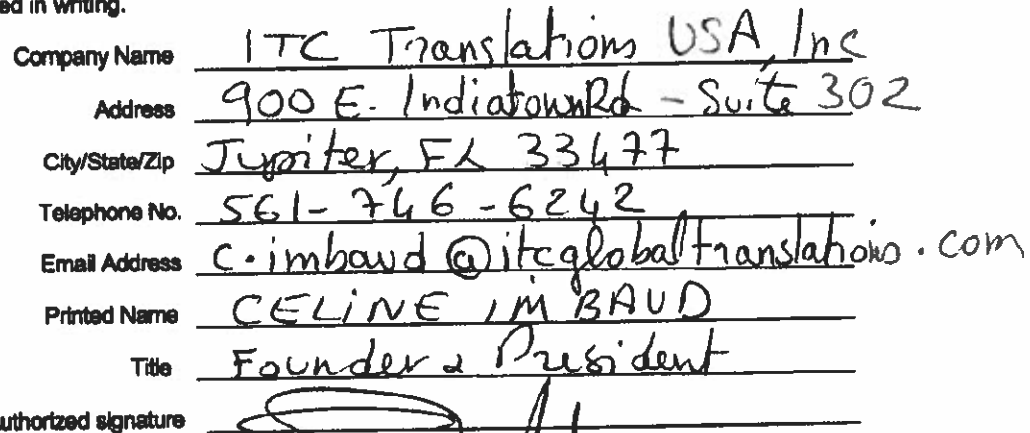 ed in writing.
Company Name ITC Translations USA, Inc
Address 900 E. Indiatown Rd - Suite 302
City/State/Zip Jupiter, FL 33477
Telephone No. 561-746-6242
Email Address c.imbaud@itcglobaltranslations.com
Printed Name CELINE IMBAUD
Title Founder & President
uthorized signature